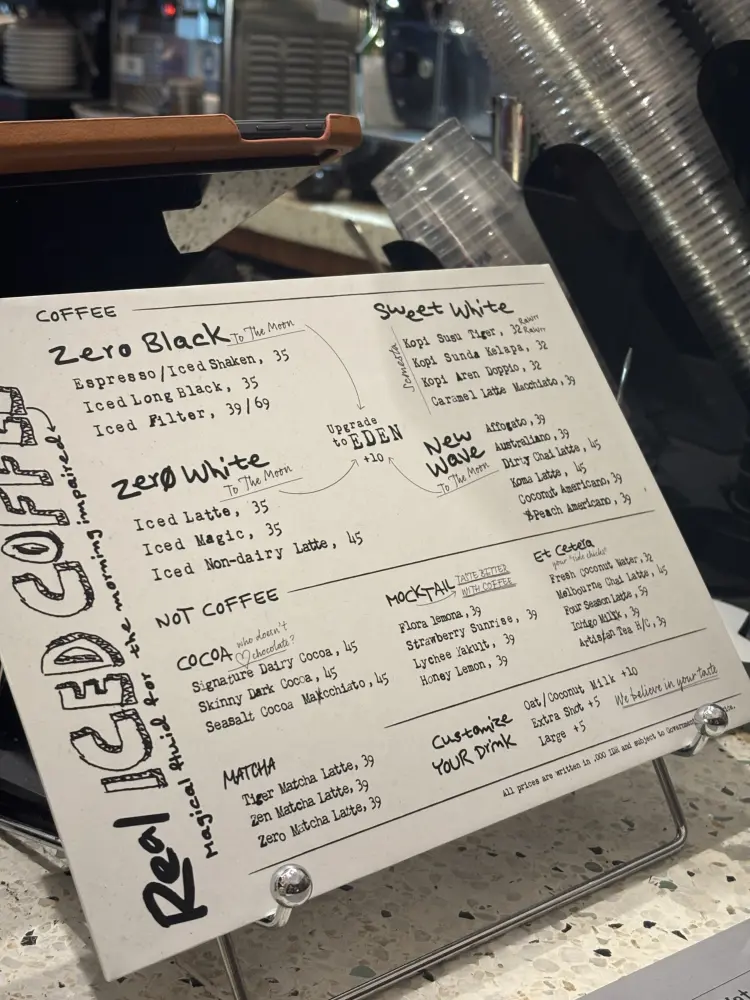 Real ICED COFFEE
Magical fluid for the morning impaired
COFFEE
Zero Black
To The Moon
Espresso/Iced Shaken, 35
Iced Long Black, 35
Iced Filter, 39/69
Zerø White
To The Moon
Iced Latte, 35
Iced Magic, 35
Iced Non-dairy Latte, 45
Upgrade
to EDEN
+10
Sweet White
Semesta
Kopi Susu Tiger, 32 Rawrr Rawrr
Kopi Sunda Kelapa, 32
Kopi Aren Doppio, 32
Caramel Latte Macchiato, 39
New
Wave
To The Moon
Affogato, 39
Australiano, 39
Dirty Chai Latte, 45
Koma Latte, 45
Coconut Americano, 39
Peach Americano, 39
NOT COFFEE
COCOA
who doesn't
♡ chocolate?
Signature Dairy Cocoa, 45
Skinny Dark Cocoa, 45
Seasalt Cocoa Macchiato, 45
MATCHA
Tiger Matcha Latte, 39
Zen Matcha Latte, 39
Zero Matcha Latte, 39
MOCKTAIL
TASTE BETTER
WITH COFFEE
Flora lemona, 39
Strawberry Sunrise, 39
Lychee Yakult, 39
Honey Lemon, 39
Et Cetera
your "side chicks"
Fresh Coconut Water, 32
Melbourne Chai Latte, 45
Four Season Latte, 59
Ichigo Milyk, 39
Artisan Tea H/C, 39
Customize
YOUR Drink
Oat/Coconut Milk +10
Extra Shot +5
Large +5
We believe in your taste
All prices are written in ,000 IDR and subject to Government